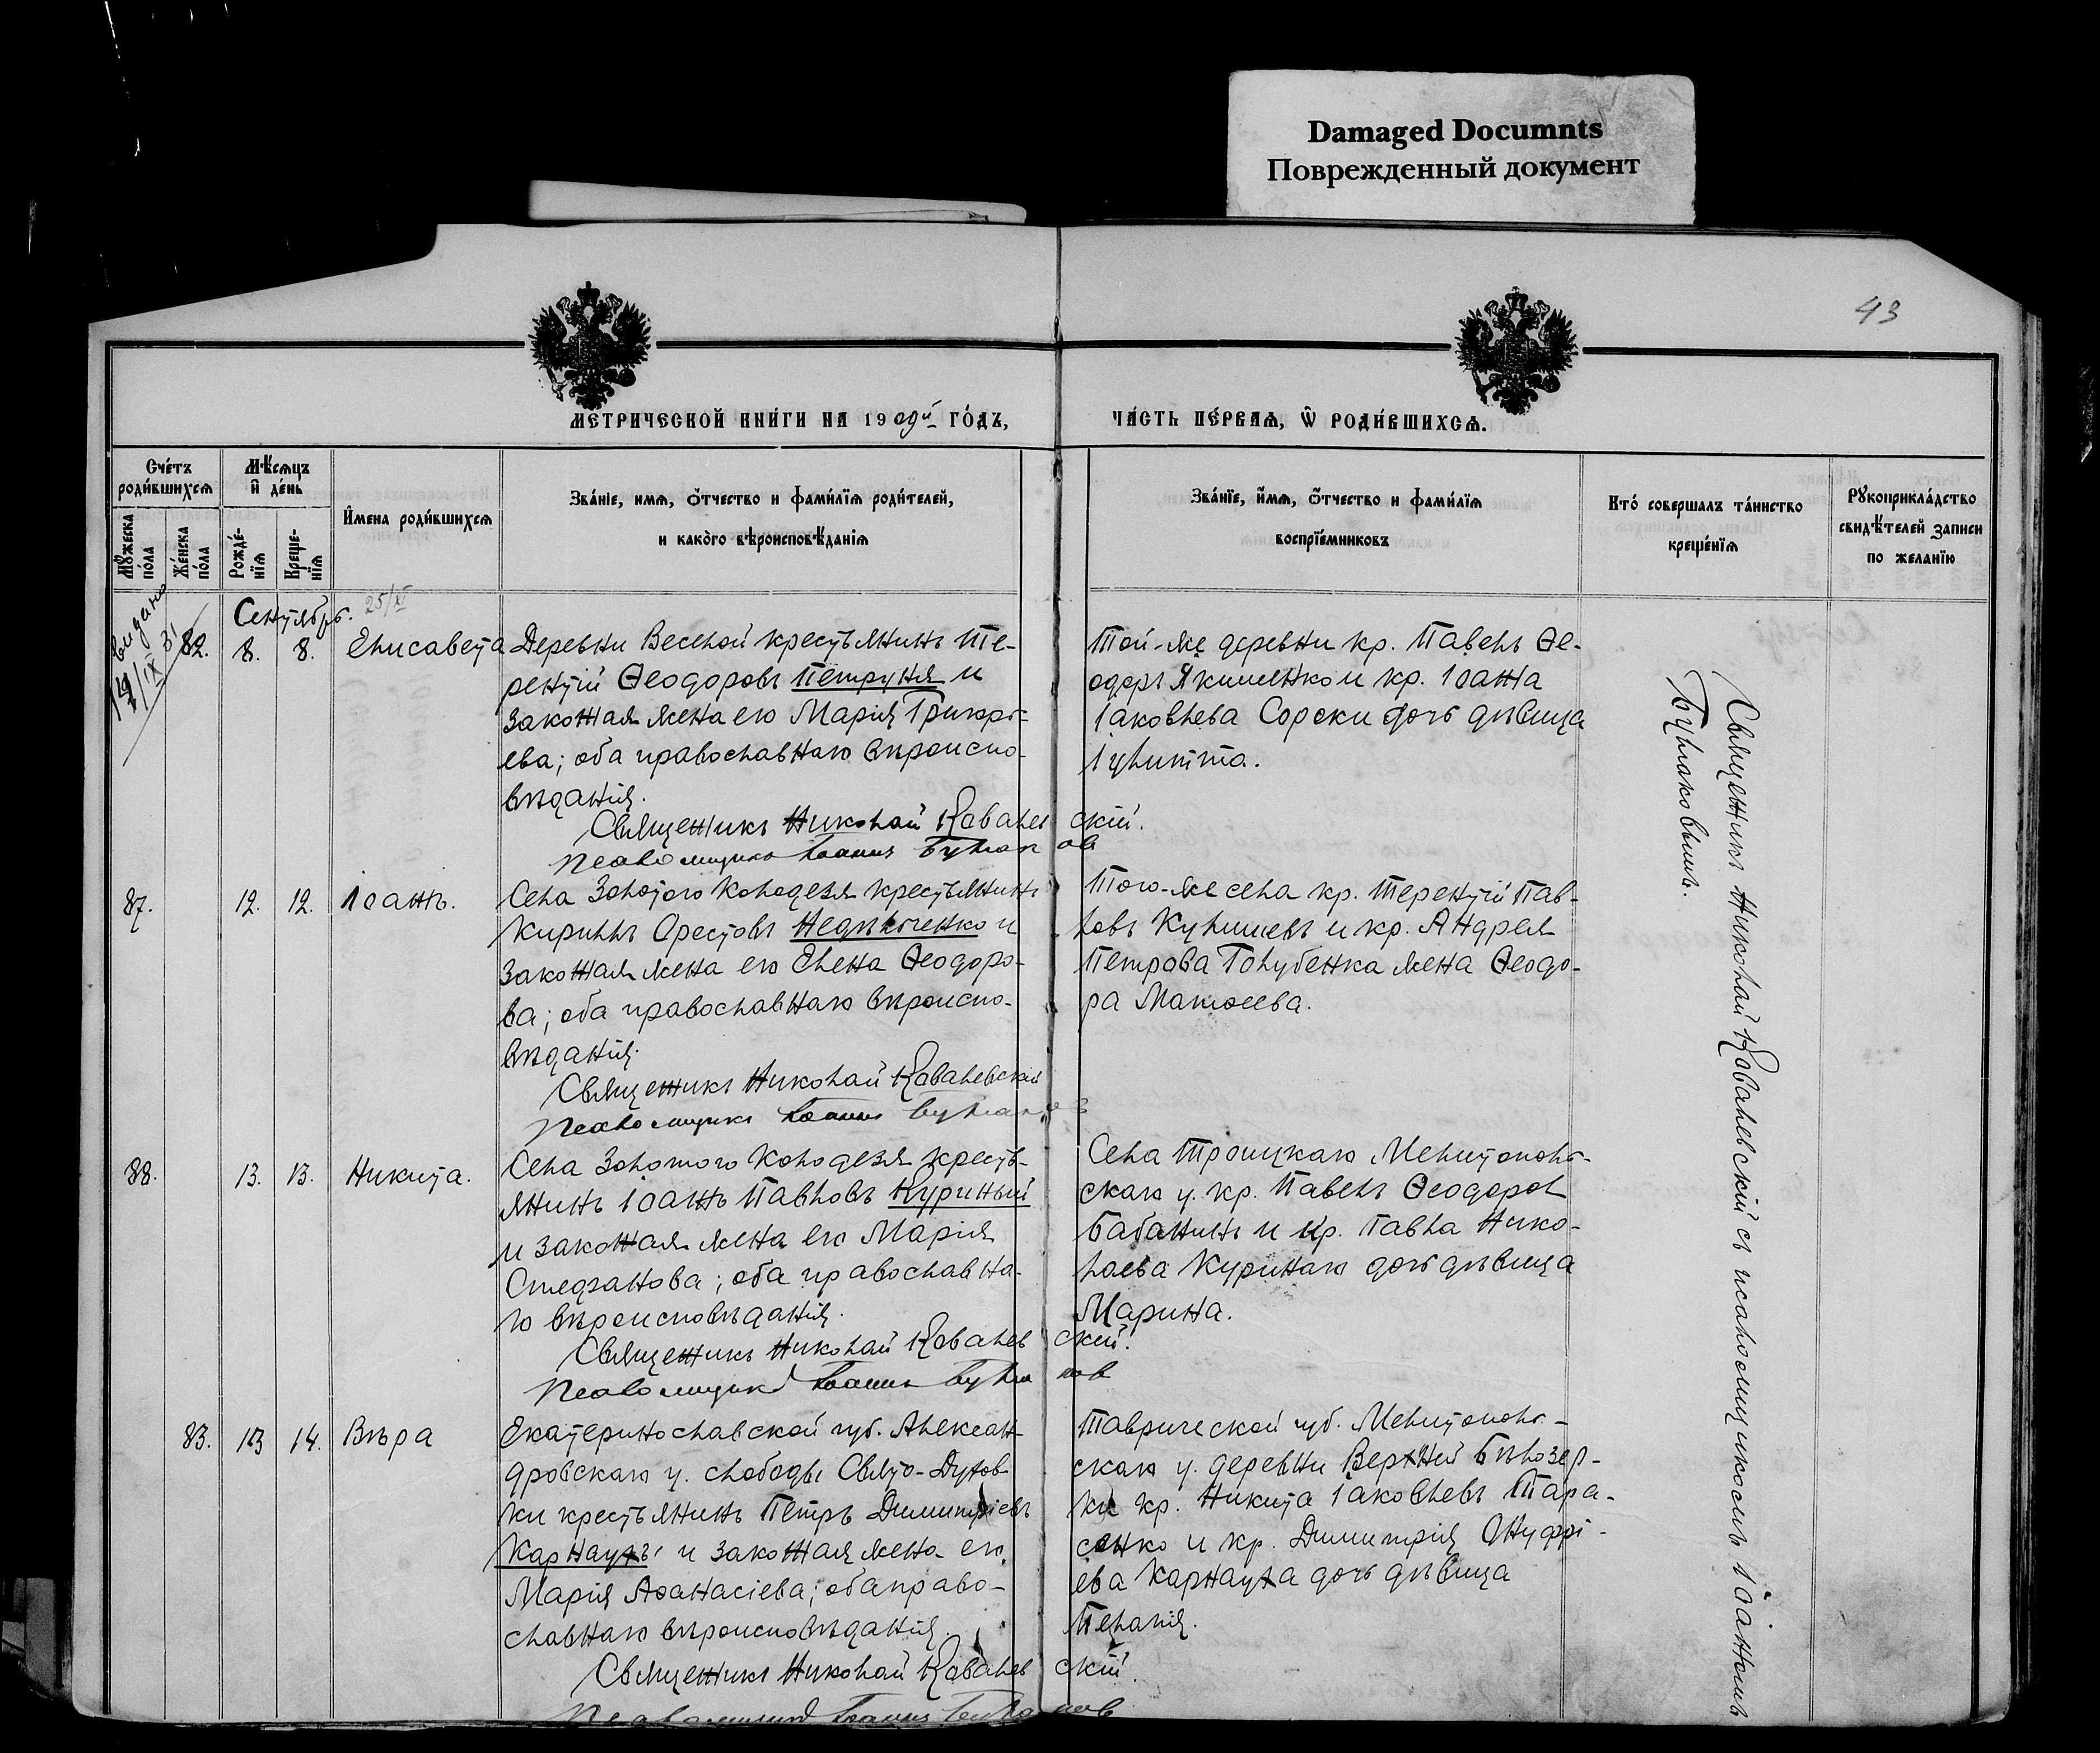 Damaged Documnts
Поврежденный документ
43
МЕТРИЧЕСКОЙ КНИ́ГИ НА 1909й ГО́ДЪ,
ЧА́СТЬ ПЕ́РВАѦ, Ѿ РОДИ́ВШИХСѦ.
Сче́тъ
роди́вшихсѧ
Мѣ́сѧцъ
и де́нь
И́мена роди́вшихсѧ
Зва́нїе, имѧ, ѻ́тчество и фами́лїѧ роди́телей,
и како́го вѣроисповѣ́данїѧ
Зва́нїе, и́мѧ, ѻ́тчество и фами́лїѧ
воспрїе́мниковъ
Кто́ совершалъ та́инство
креще́нїѧ
Рꙋкоприкла́дство
свидѣ́телей записи
по жела́нїю
Мꙋжеска
по́ла
Же́нска
по́ла
Рожде́-
нїѧ
Креще-
нїѧ
Сентябрь.
25/XI
видано
82.
8.
8.
Елисавета
Деревни Веселой крестьянинъ Те-
рентій Ѳеодоровъ Петруня и
законная жена его Марія Григорь-
ева; оба православнаго вѣроиспо-
вѣданія.
Священникъ Николай Ковалевскій.
Псаломщикъ Іоаннъ Булмаков
Той-же деревни кр. Павелъ Ѳе-
одоръ Якименко и кр. Іоанна
Іаковлева Сороки дочь дѣвица
Іулитта.
87.
12.
12.
Іоаннъ.
Села Золотого Колодезя крестьянинъ
Кириллъ Орестовъ Недѣльченко и
законная жена его Елена Ѳеодоро-
ва; оба православнаго вѣроиспо-
вѣданія.
Священникъ Николай Ковалевскій
Псаломщикъ Іоаннъ Булмаков
Того-же села кр. Терентій Пав-
ловъ Кулишевъ и кр. Андрея
Петрова Голубенка жена Ѳеодо-
ра Матѳеева.
88.
13.
13.
Никита.
Села Золотого Колодезя кресть-
янинъ Іоаннъ Павловъ Куриный
и законная жена его Марія
Стефанова; оба православна-
го вѣроисповѣданія.
Священникъ Николай Ковалевскій.
Псаломщикъ Іоаннъ Булмаков
Села Троицкаго Мелитополь-
скаго у. кр. Павелъ Ѳеодоров
Бабанинъ и кр. Павла Нико-
лаева Куринаго дочь дѣвица
Марина.
83.
13
14.
Вѣра
Екатеринославской губ. Алексан-
дровскаго у. слободы Свято-Духов-
ки крестьянинъ Петръ Димитріевъ
Карнаухъ и законная жена его
Марія Аѳанасіева; оба право-
славнаго вѣроисповѣданія.
Священникъ Николай Ковалевскій.
Псаломщикъ Іоаннъ Булмаков
Таврической губ. Мелитополь-
скаго у. деревни Верхней Бѣлозер-
ки кр. Никита Іаковлевъ Тара-
сенко и кр. Димитрія Онуфрі-
ева Карнауха дочь дѣвица
Пелагія.
Священникъ Николай Ковалевскій съ псаломщикомъ Іоанномъ
Булмаковымъ.